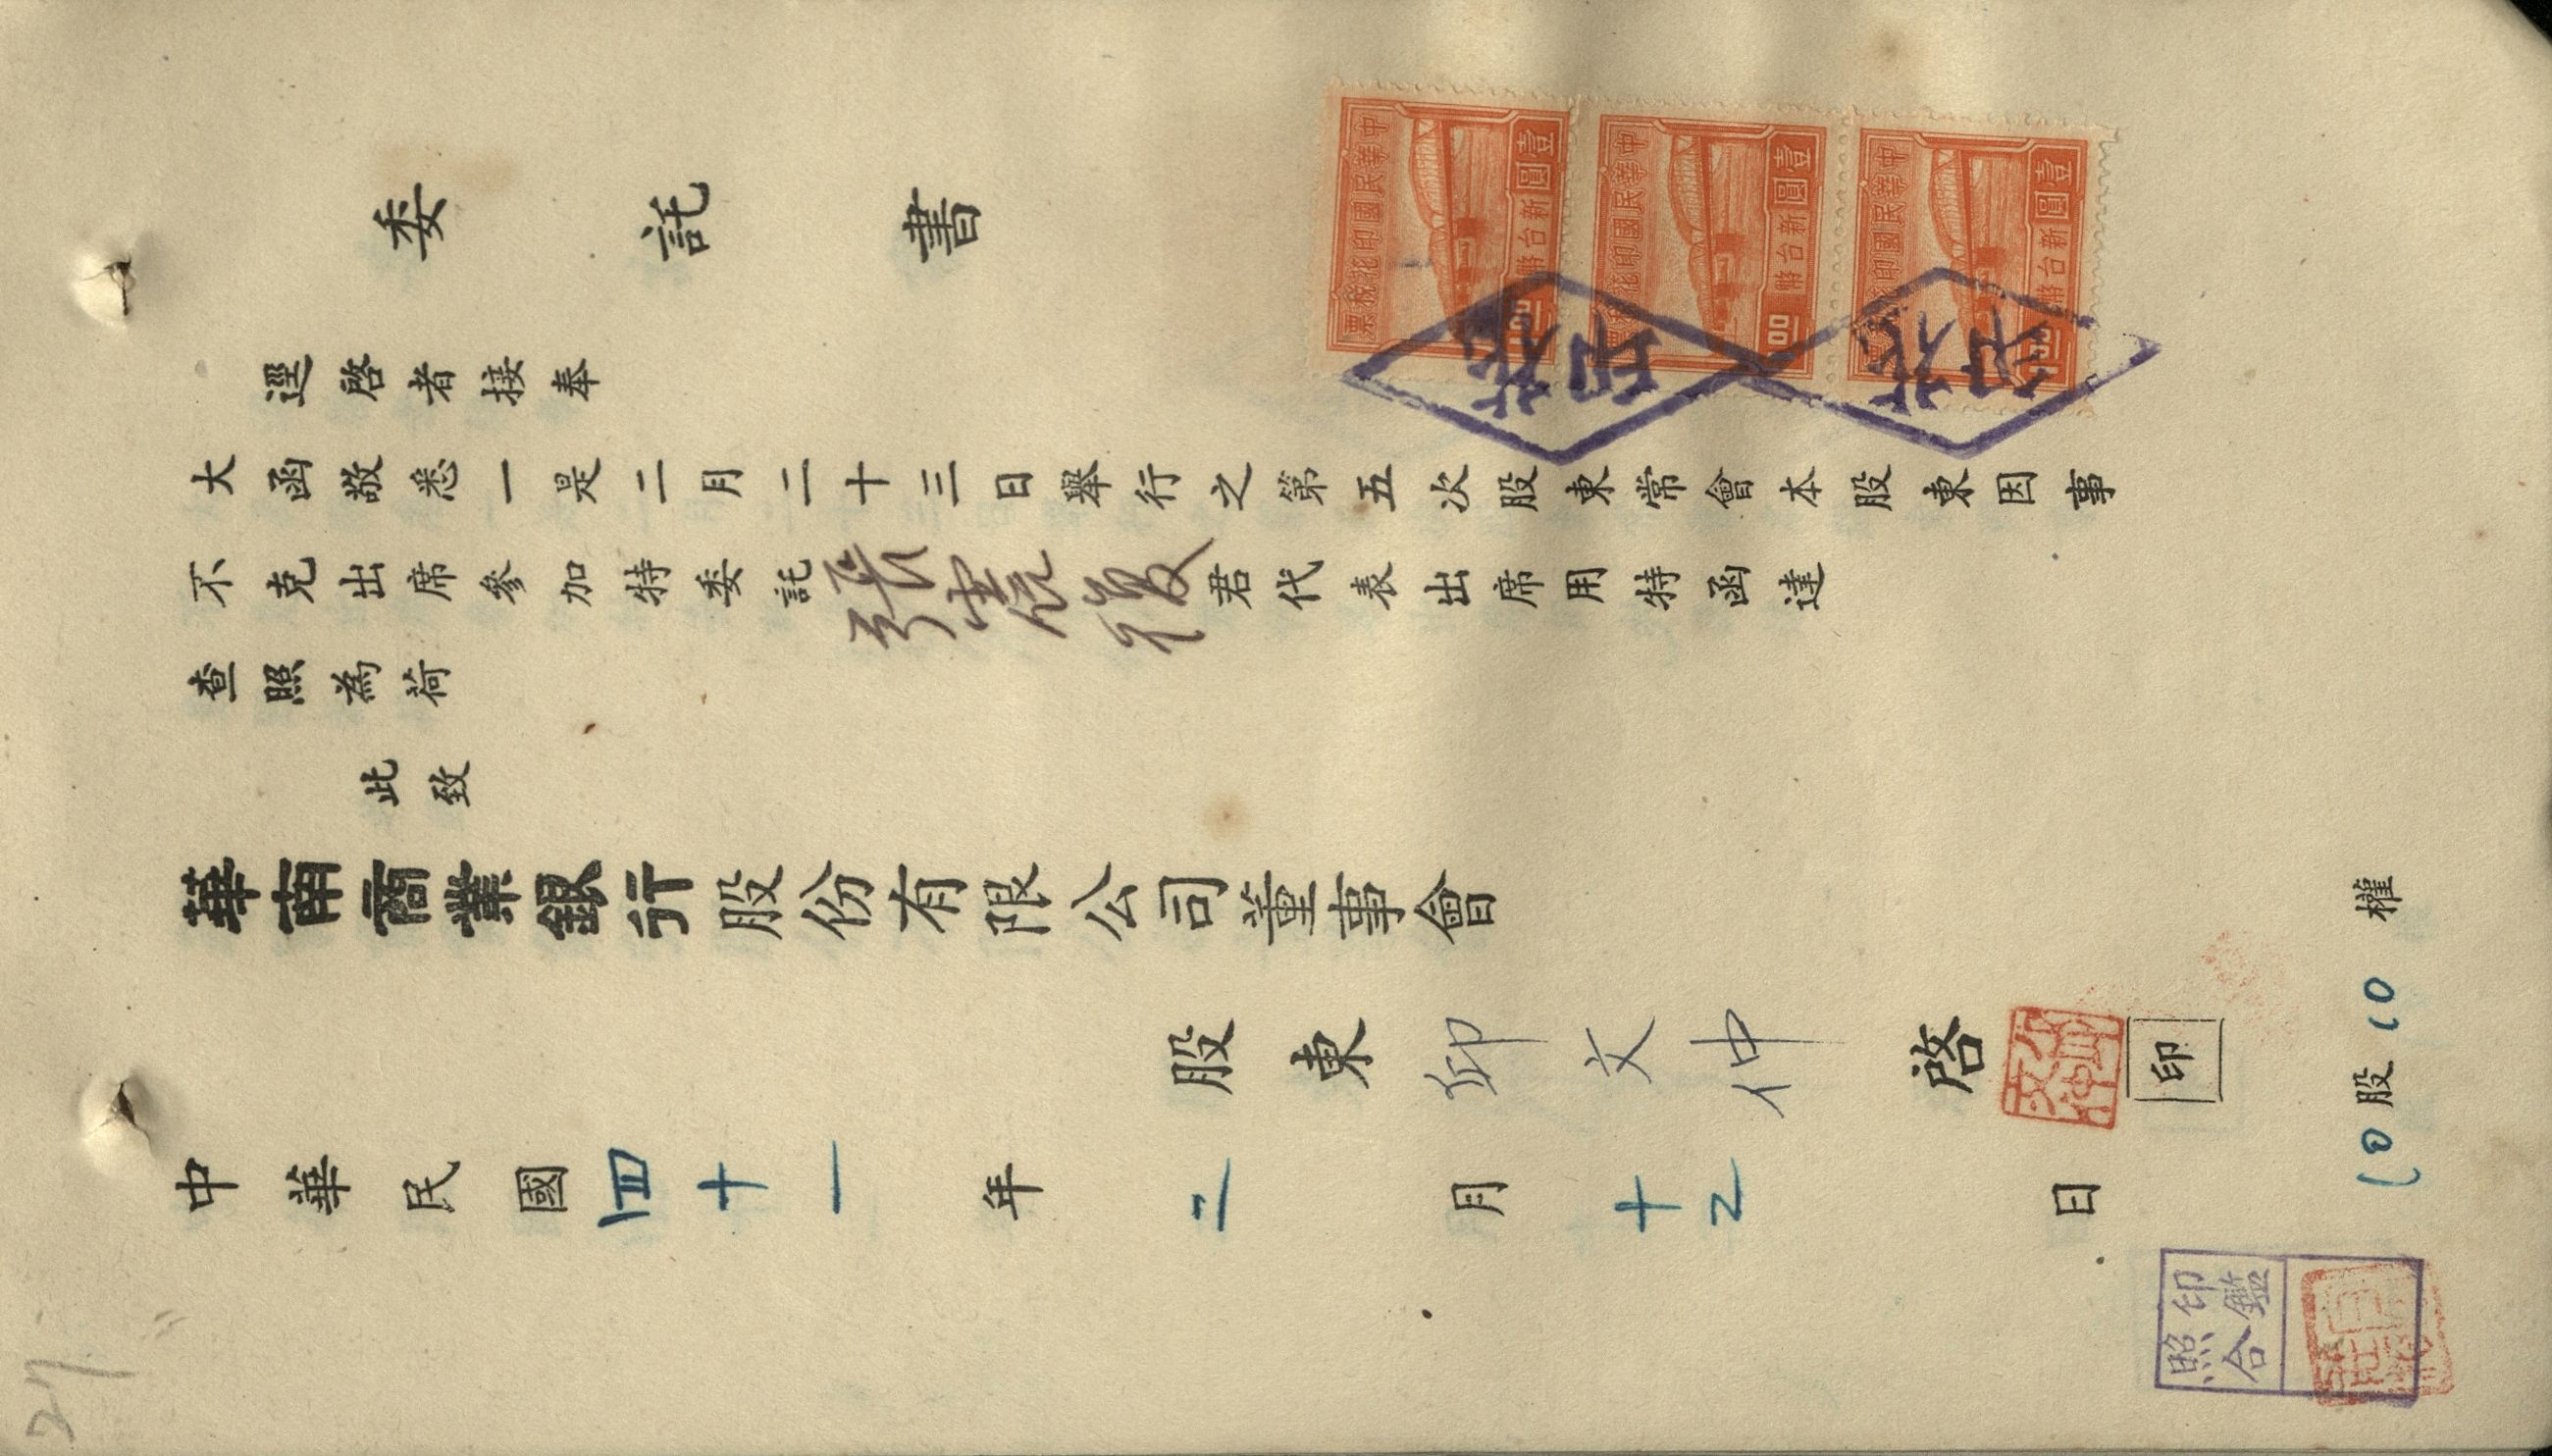 委託書
逕啓者接奉
大函敬悉一是二月二十三日舉行之第五次股東常會本股東因事
不克出席參加特委託張憲複君代表出席用特函達
查照為荷
此致
華南商業銀行股份有限公司董事會
股東 仰文仲 啓 印
中華民國四十一年二月十二日
10股10權
印鑑照合
中華民國印花稅票 壹圓 新台幣
中華民國印花稅票 壹圓 新台幣
中華民國印花稅票 壹圓 新台幣
27